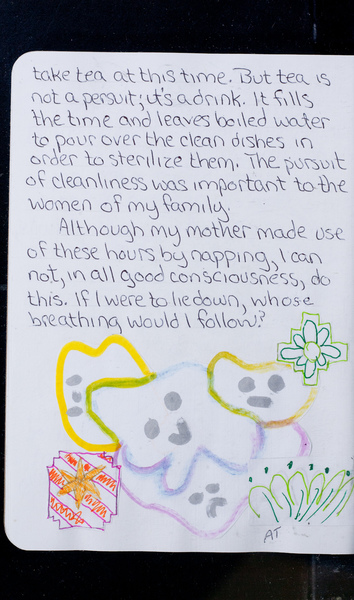 take tea at this time. But tea is
not a persuit; it's a drink. It fills
the time and leaves boiled water
to pour over the clean dishes in
order to sterilize them. The pursuit
of cleanliness was important to the
women of my family.
Although my mother made use
of these hours by napping, I can
not, in all good consciousness, do
this. If I were to lie down, whose
breathing would I follow?
AT